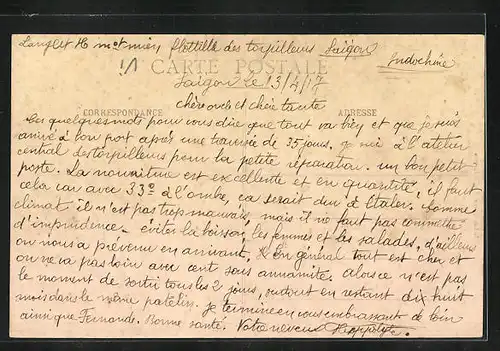 Langlet H mot mien flottille des torpilleurs Saïgon
Indochine
CARTE POSTALE
Saïgon Le 13/4/17
CORRESPONDANCE
ADRESSE
chère oncle et chère tante
Ces quelques mots pour vous dire que tout va bien et que je suis
arrivé à bon port après une traversée de 35 jours. je suis à l'atelier
central des torpilleurs pour la petite réparation. un bon petit
poste. La nourriture est excellente et en quantité, il faut
cela car avec 33° à l'ombre, ça serait dur à étaler. Comme
climat il n'est pas trop mauvais, mais il ne faut pas commettre
d'imprudence. éviter la boisson, les femmes et les salades, d'ailleurs
on nous a prévenu en arrivant. En général tout est cher et
on ne va pas loin avec cent sous annamite. alors ce n'est pas
le moment de sortir tous les 2 jours, surtout en restant dix huit
mois dans le même patelin. je termine en vous embrassant de loin
ainsi que Fernande. Bonne santé. Votre neveu Hippolyte.